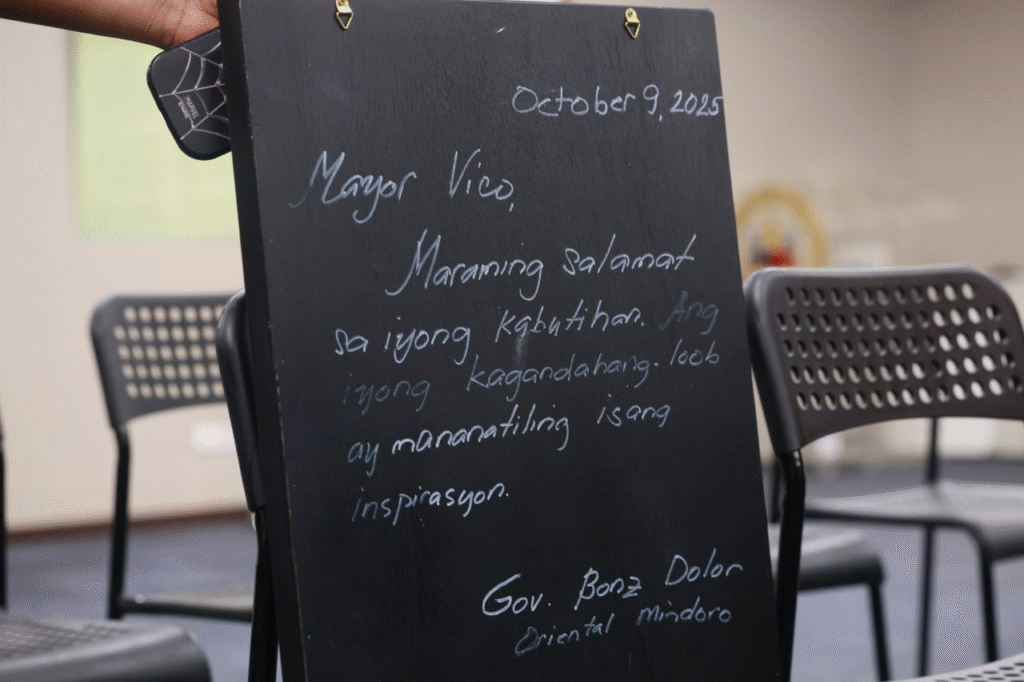 October 9, 2025
Mayor Vico,
Maraming salamat
sa iyong kabutihan. Ang
iyong kagandahang-loob
ay mananatiling isang
inspirasyon.
Gov. Bonz Dolor
Oriental Mindoro